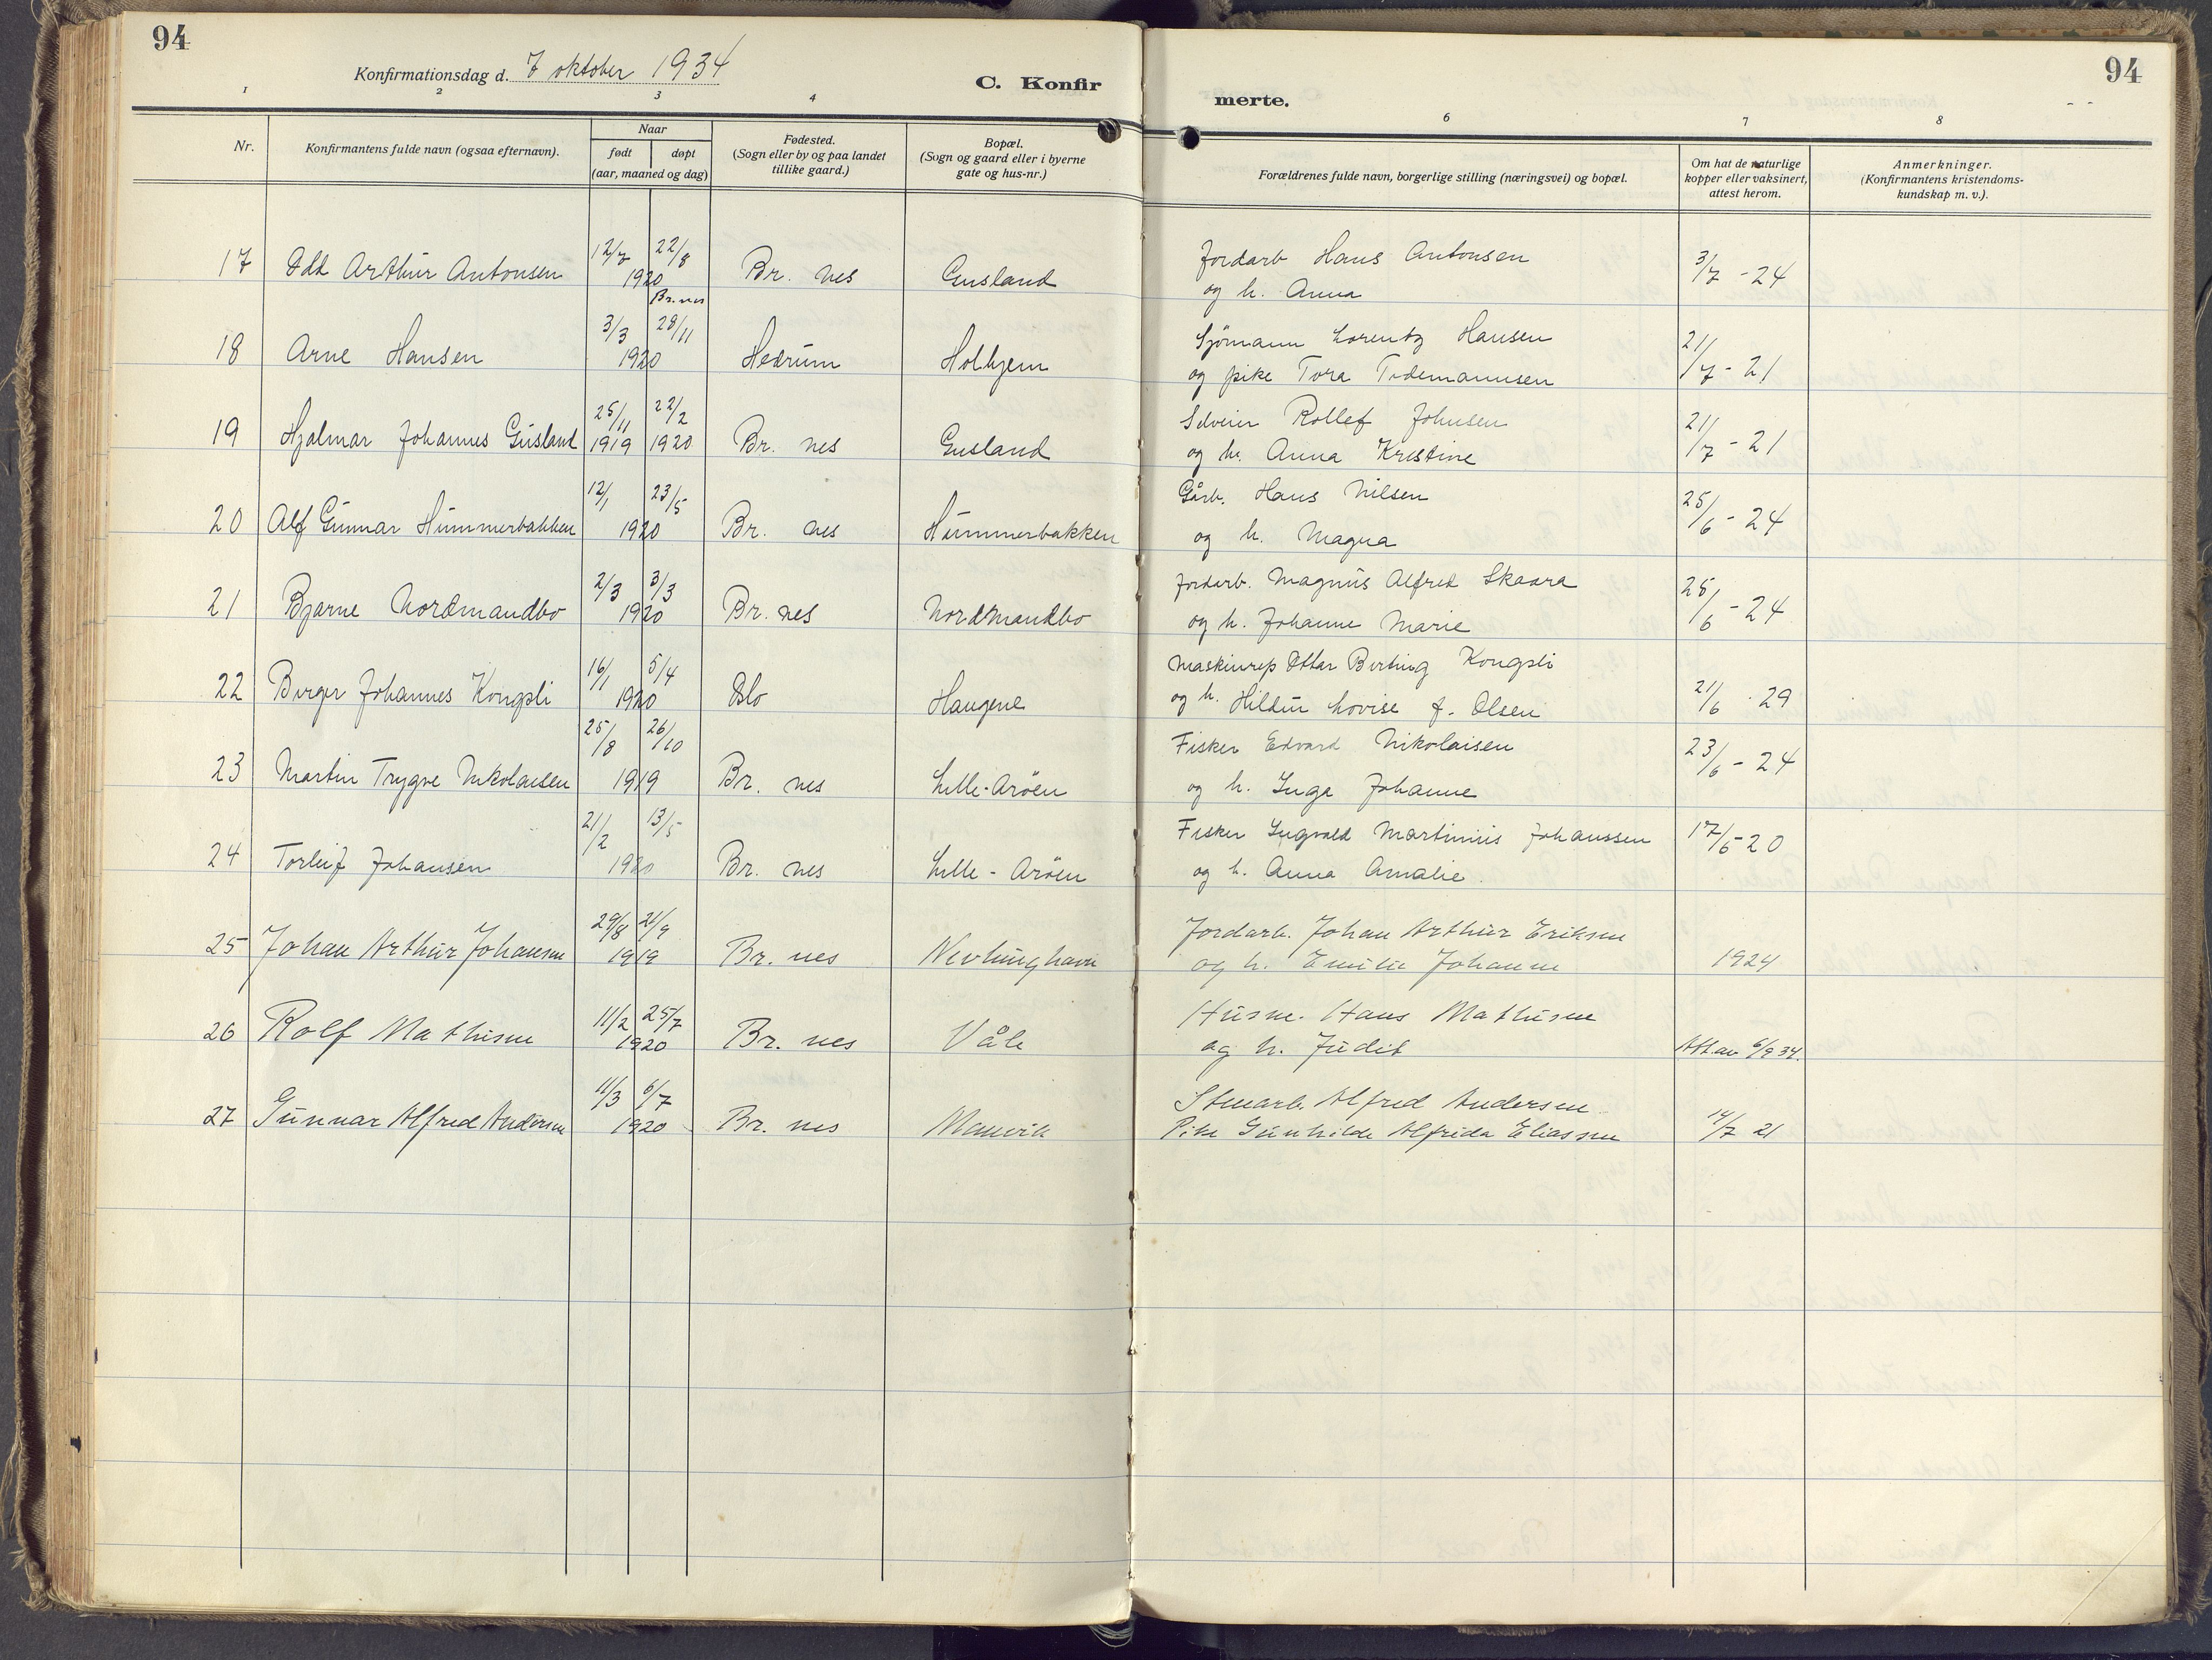 94
Konfirmationsdag d. 7 oktober 1934
C. Konfir
merte.
94
1 2 3 4 6 7 8
Nr.
Konfirmantens fulde navn (ogsaa efternavn).
Naar
født døpt
(aar, maaned og dag)
Fødested.
(Sogn eller by og paa landet
tillike gaard.)
Bopæl.
(Sogn og gaard eller i byerne
gate og hus-nr.)
Forældrenes fulde navn, borgerlige stilling (næringsvei) og bopæl.
Om hat de naturlige
kopper eller vaksinert,
attest herom.
Anmerkninger.
(Konfirmantens kristendoms-
kundskap m. v.).
12/7 22/8 Jordarb Hans Antonsen
17 Odd Arthur Antonsen 1920 Br. nes Gusland og h. Anna 3/7 - 24
Br. nes
3/3 28/11 Sjömann Lorentz Hansen
18 Arne Hansen 1920 Hedrum Holhjem og pike Tora Tidemannsen 21/7 - 21
25/11 22/2 Selveier Rollef Johnsen
19 Hjalmar Johannes Gusland 1919 1920 Br. nes Gusland og h. Anna Kristine 21/7 - 21
12/1 23/5 Gårb. Hans Nilsen
20 Alf Gunnar Hummerbakken 1920 Br. nes Hummerbakken og h. Magna 25/6 - 24
2/3 3/3 Jordarb. Magnus Alfred Skaara
21 Bjarne Nordmandbo 1920 Br. nes Nordmandbo og h. Johanne Marie 25/6 - 24
16/1 5/4 Maskinrep Ottar Birting Kongsli
22 Birger Johannes Kongsli 1920 Oslo Haugene og h. Hildur Lovise f. Olsen 21/6 - 29
25/8 26/10 Fisker Edvard Nikolaisen
23 Martin Trygve Nikolaisen 1919 Br. nes Lille-Aröen og h. Inga Johanne 23/6 - 24
21/2 13/5 Fisker Ingvald Martinius Johanssen
24 Torleif Johansen 1920 Br. nes Lille - Aröen og h. Anna Amalie. 17/6 - 20
29/8 21/9 Jordarb. Johan Arthur Eriksen
25 Johan Arthur Johansen 1919 Br. nes Nevlunghavn og h. Emilie Johanne 1924
11/2 25/7 Husm. Hans Mathisen
26 Rolf Mathisen 1920 Br. nes Våle og h. Judit Att. av 6/9 34.
11/3 6/7 Stenarb. Alfred Andersen
27 Gunnar Alfred Andersen 1920 Br. nes Manvik Pike Gunhilde Alfrida Eliassen 14/7 21